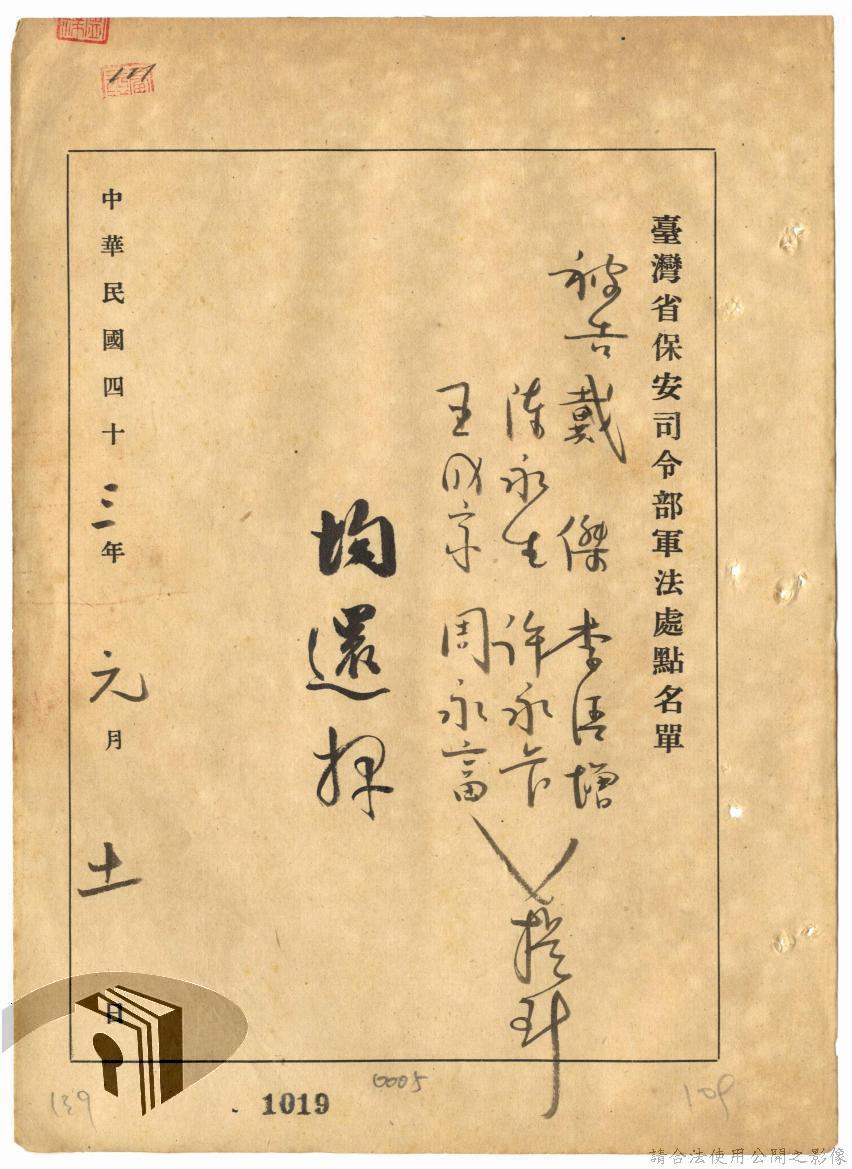 臺灣省保安司令部軍法處點名單
被告戴傑 李
陳永生 許永
王成 周永富
提
均還押
中華民國四十三年元月十一日
111
0005
1019
139
109
請合法使用公開之影像